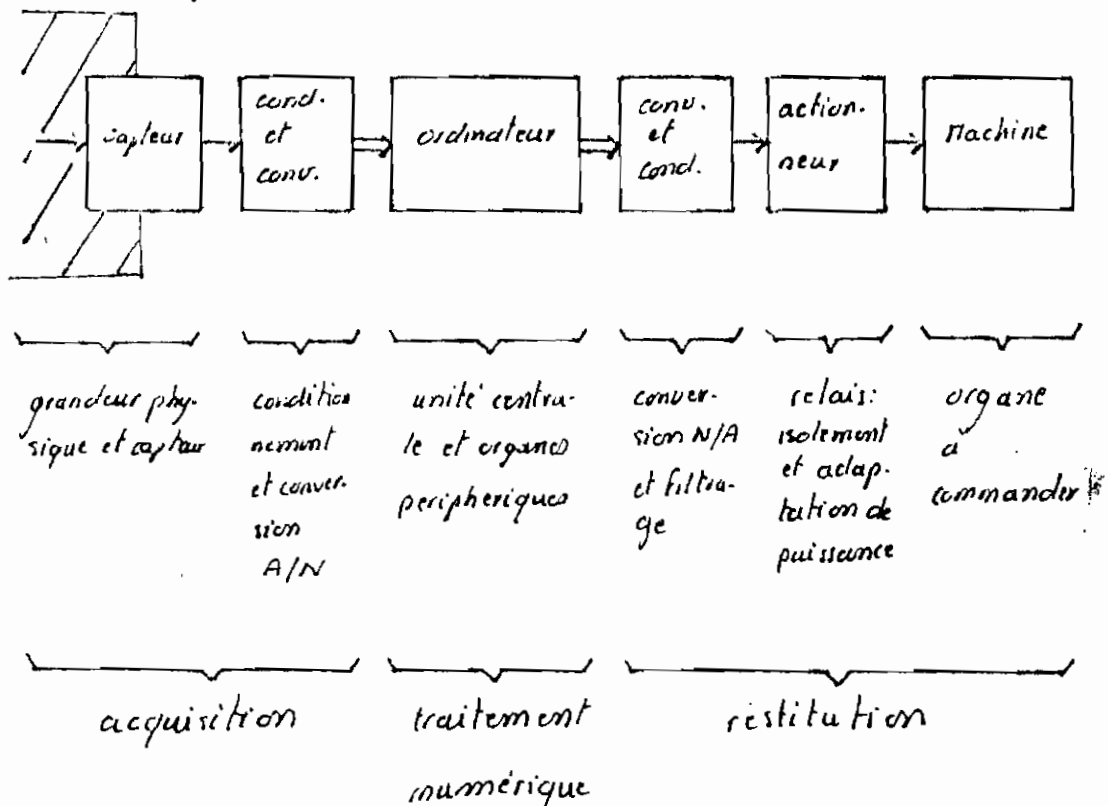 capteur
cond.
et
conv.
ordinateur
conv.
et
cond.
action.
neur
Machine
grandeur phy-
sique et capteur
condition
nement
et conver-
sion
A/N
unité centra-
le et organes
peripheriques
conver-
sion N/A
et filtra-
ge
relais:
isolement
et adap-
tation de
puissance
organe
à
commander
acquisition
traitement
numérique
restitution